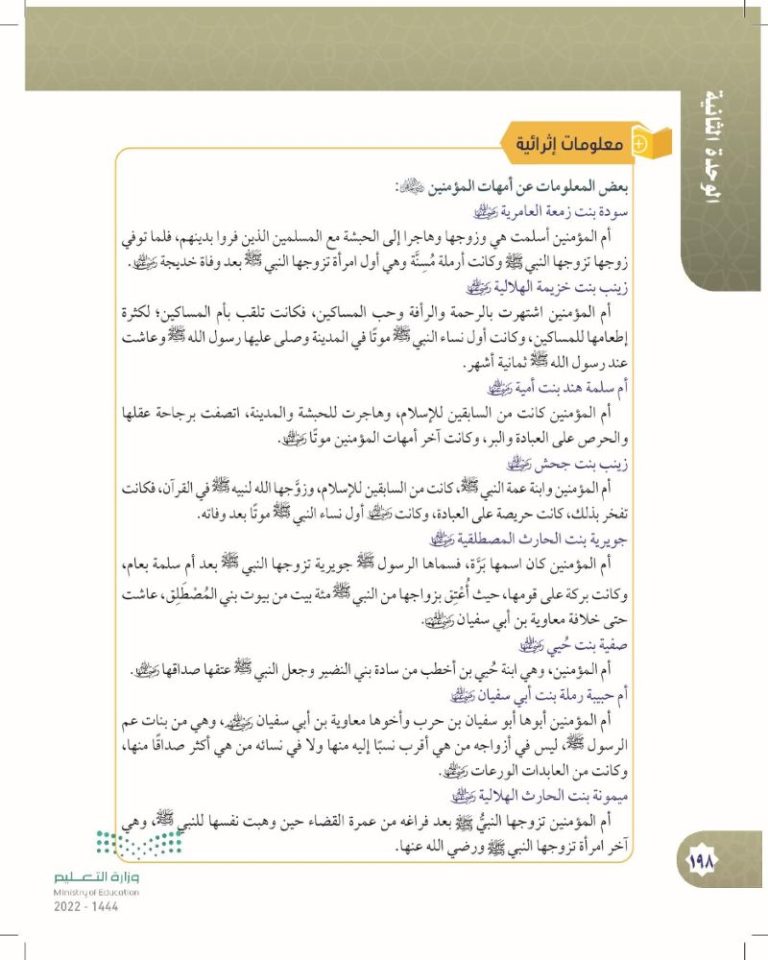 الوحدة الثانية
معلومات إثرائية
بعض المعلومات عن أمهات المؤمنين ﵅:
سودة بنت زمعة العامرية ﵂
أم المؤمنين أسلمت هي وزوجها وهاجرا إلى الحبشة مع المسلمين الذين فروا بدينهم، فلما توفي
زوجها تزوجها النبي ﷺ وكانت أرملة مُسِنَّة وهي أول امرأة تزوجها النبي ﷺ بعد وفاة خديجة ﵂.
زينب بنت خزيمة الهلالية ﵂
أم المؤمنين اشتهرت بالرحمة والرأفة وحب المساكين، فكانت تلقب بأم المساكين؛ لكثرة
إطعامها للمساكين، وكانت أول نساء النبي ﷺ موتًا في المدينة وصلى عليها رسول الله ﷺ وعاشت
عند رسول الله ﷺ ثمانية أشهر.
أم سلمة هند بنت أمية ﵂
أم المؤمنين كانت من السابقين للإسلام، وهاجرت للحبشة والمدينة، اتصفت برجاحة عقلها
والحرص على العبادة والبر، وكانت آخر أمهات المؤمنين موتًا ﵂.
زينب بنت جحش ﵂
أم المؤمنين وابنة عمة النبي ﷺ، كانت من السابقين للإسلام، وزوَّجها الله لنبيه ﷺ في القرآن، فكانت
تفخر بذلك، كانت حريصة على العبادة، وكانت ﵂ أول نساء النبي ﷺ موتًا بعد وفاته.
جويرية بنت الحارث المصطلقية ﵂
أم المؤمنين كان اسمها بَرَّة، فسماها الرسول ﷺ جويرية تزوجها النبي ﷺ بعد أم سلمة بعام،
وكانت بركة على قومها، حيث أُعْتِق بزواجها من النبي ﷺ مئة بيت من بيوت بني المُصْطَلِق، عاشت
حتى خلافة معاوية بن أبي سفيان ﵄.
صفية بنت حُيي ﵂
أم المؤمنين، وهي ابنة حُيي بن أخطب من سادة بني النضير وجعل النبي ﷺ عتقها صداقها ﵂.
أم حبيبة رملة بنت أبي سفيان ﵂
أم المؤمنين أبوها أبو سفيان بن حرب وأخوها معاوية بن أبي سفيان ﵃، وهي من بنات عم
الرسول ﷺ، ليس في أزواجه من هي أقرب نسبًا إليه منها ولا في نسائه من هي أكثر صداقًا منها،
وكانت من العابدات الورعات ﵂.
ميمونة بنت الحارث الهلالية ﵂
أم المؤمنين تزوجها النبيُّ ﷺ بعد فراغه من عمرة القضاء حين وهبت نفسها للنبي ﷺ، وهي
آخر امرأة تزوجها النبي ﷺ ورضي الله عنها.
وزارة التعليم
Ministry of Education
2022 - 1444
١٩٨